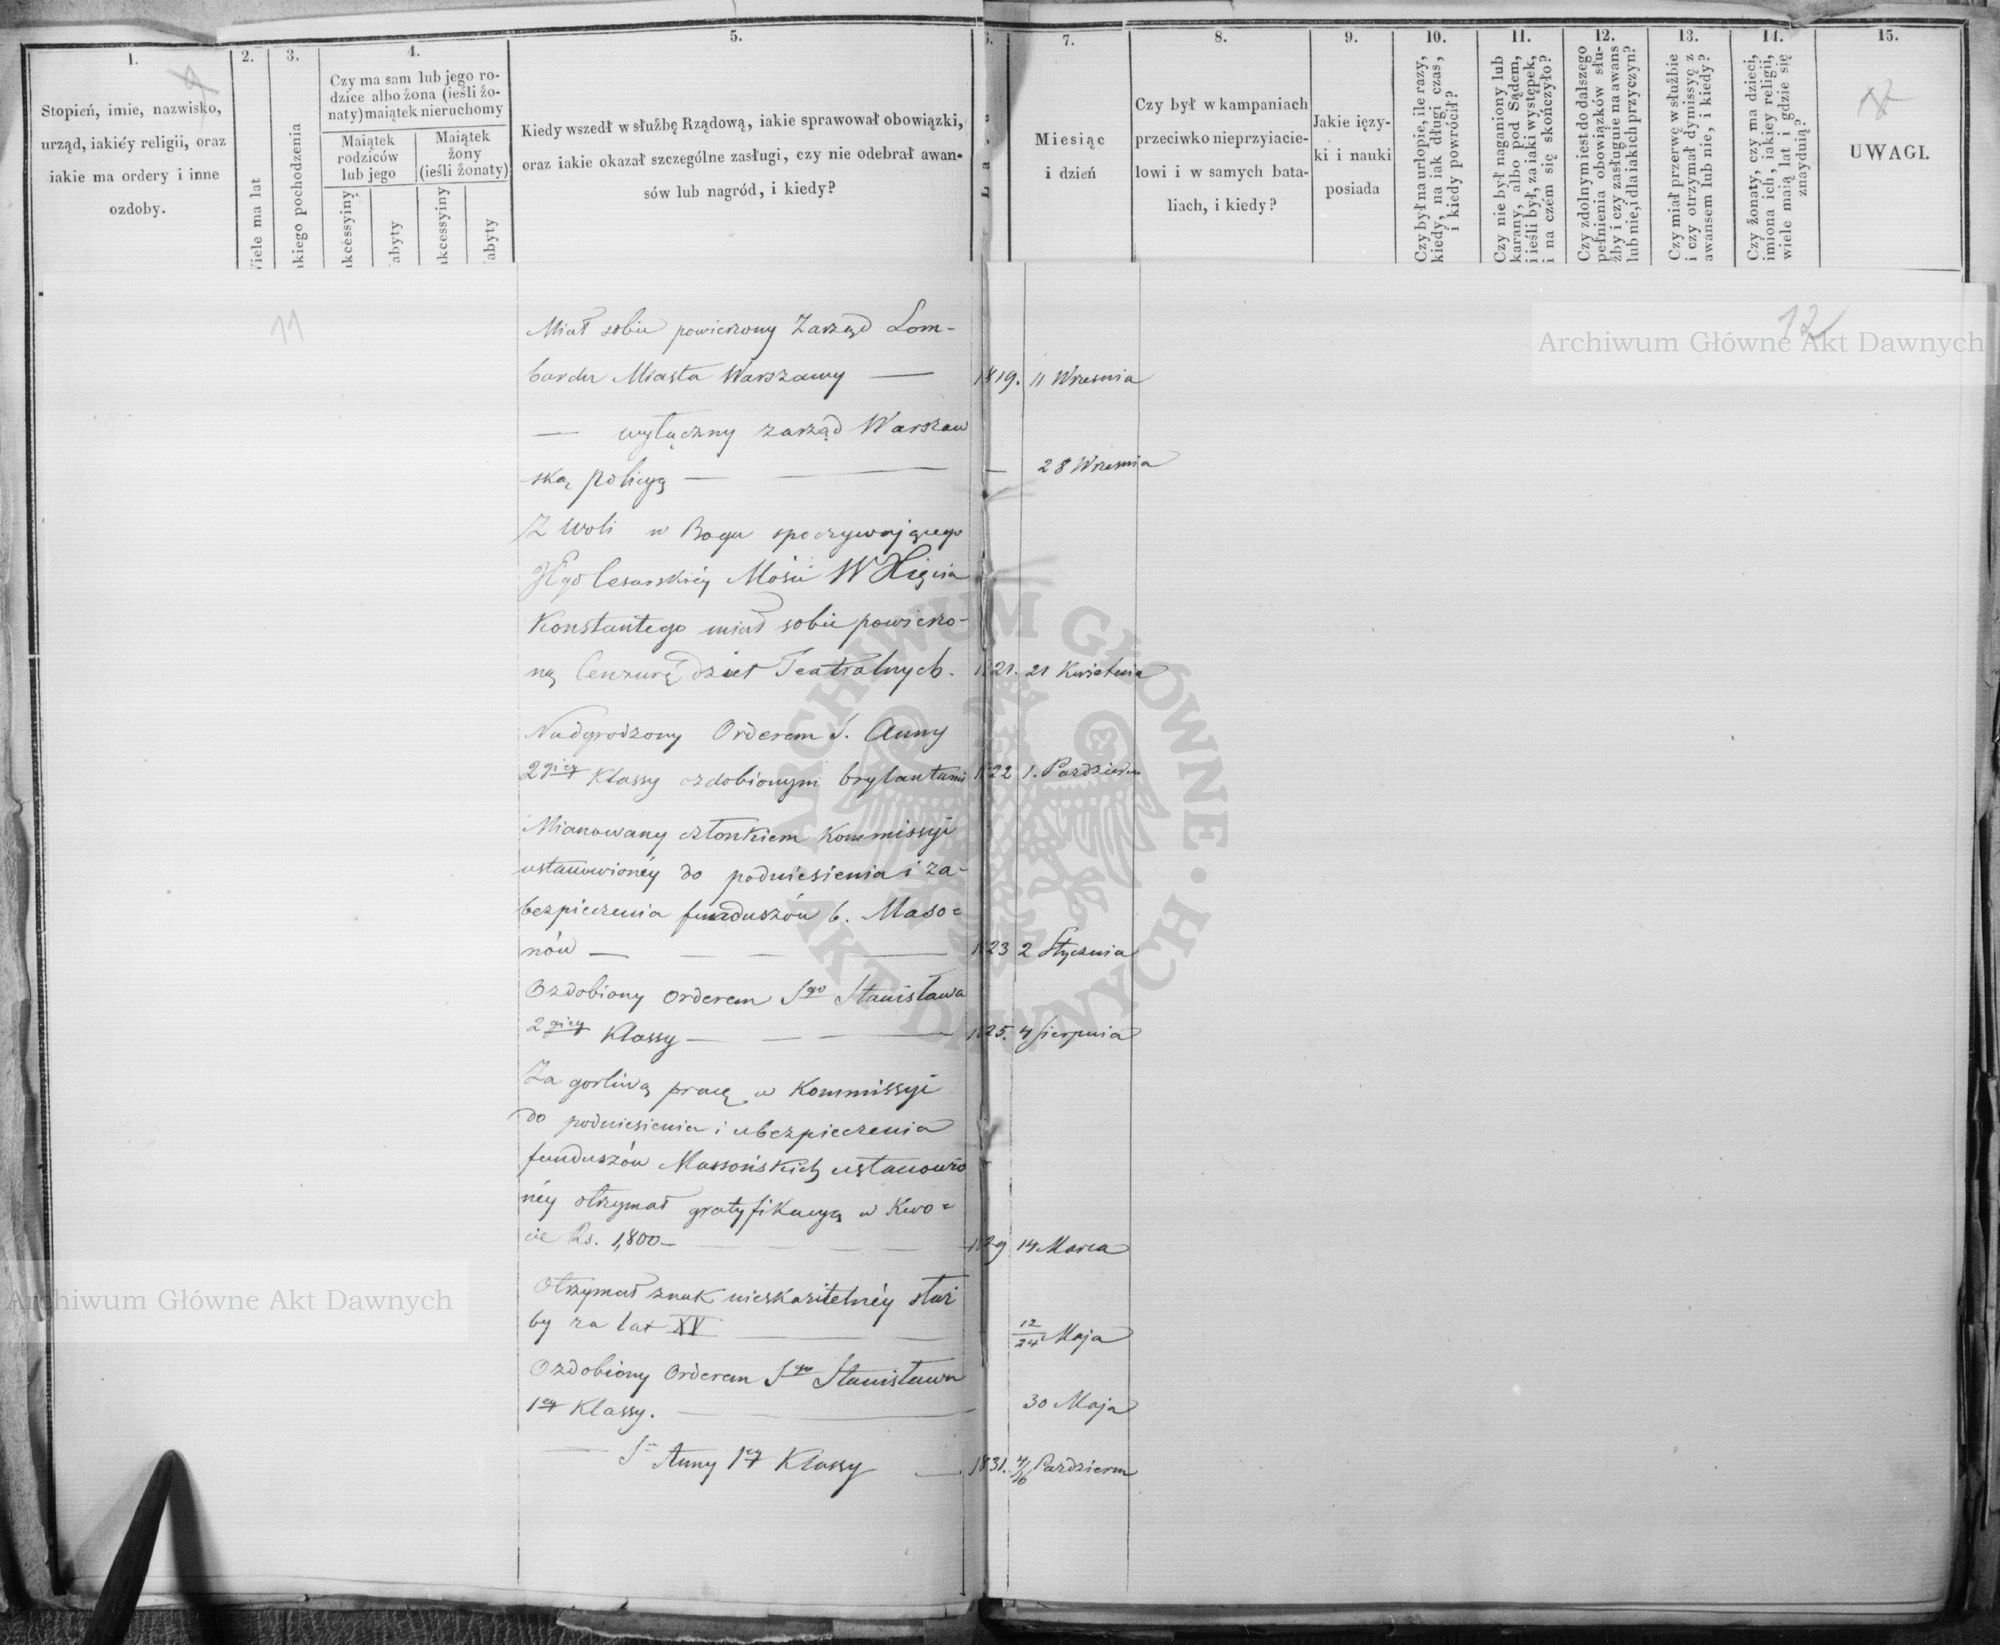 1.
Stopień, imie, nazwisko,
urząd, iakiéy religii, oraz
iakie ma ordery i inne
ozdoby.
2.
Wiele ma lat
3.
akiego pochodzenia
4.
Czy ma sam lub jego ro-
dzice albo żona (ieśli żo-
naty) maiątek nieruchomy
Maiątek
rodziców
lub jego
Maiątek
żony
(ieśli żonaty)
ukcessyiny
abyty
ukcessyiny
abyty
5.
Kiedy wszedł w służbę Rządową, iakie sprawował obowiązki,
oraz iakie okazał szczególne zasługi, czy nie odebrał awan-
sów lub nagród, i kiedy?
7.
Miesiąc
i dzień
8.
Czy był w kampaniach
przeciwko nieprzyiacie-
lowi i w samych bata-
liach, i kiedy?
9.
Jakie ięzy-
ki i nauki
posiada
10.
Czy był na urlopie, ile razy,
kiedy, na iak długi czas,
i kiedy powrócił?
11.
Czy nie był naganiony lub
karany, albo pod Sądem,
i ieśli był, za iaki występek,
i na czém się skończyło?
12.
Czy zdolnym iest do dalszego
pełnienia obowiązków słu-
żby i czy zasługuie na awans
lub nie, i dla iakich przyczyn?
13.
Czy miał przerwę w służbie
i czy otrzymał dymissyę z
awansem lub nie, i kiedy?
14.
Czy żonaty, czy ma dzieci,
imiona ich, iakiey religii,
wiele maią lat i gdzie się
znayduią?
15.
UWAGI.
11
12
Miał sobie powierzony Zarząd Lom-
bardu Miasta Warszawy — 1819. 11 Września
— wyłączny zarząd Warszaw
ską policyą — — — 28 Września
Z woli w Bogu spoczywającego
JEgo Cesarskiéy Mości W Xięcia
Konstantego miał sobie powierzo-
ną Cenzurę dzieł Teatralnych. 1821. 21 Kwietnia
Nadgrodzony Orderem S. Anny
2giey Klassy ozdobionym brylantami 1822 1. Październ
Mianowany członkiem Kommissyi
ustanowionéy do podniesienia i za-
bezpieczenia funduszów b. Maso=
nów — 1823 2 Stycznia
Ozdobiony Orderem Sgo Stanisława
2giey Klassy — 1825. 4 Sierpnia
Za gorliwą pracę w Kommissyi
do podniesienia i ubezpieczenia
funduszów Massońskich ustanowio
néy otrzymał gratyfikacyą w Kwo=
cie Rs. 1,800 — 1829 14 Marca
Otrzymał znak nieskazitelnéy służ
by za lat XV — 12/24 Maja
Ozdobiony Orderem Sgo Stanisława
1ey Klassy. — 30 Maja
— S. Anny 1ey Klassy — 1831. Październ
Archiwum Główne Akt Dawnych
Archiwum Główne Akt Dawnych
ARCHIWUM GŁÓWNE AKT DAWNYCH